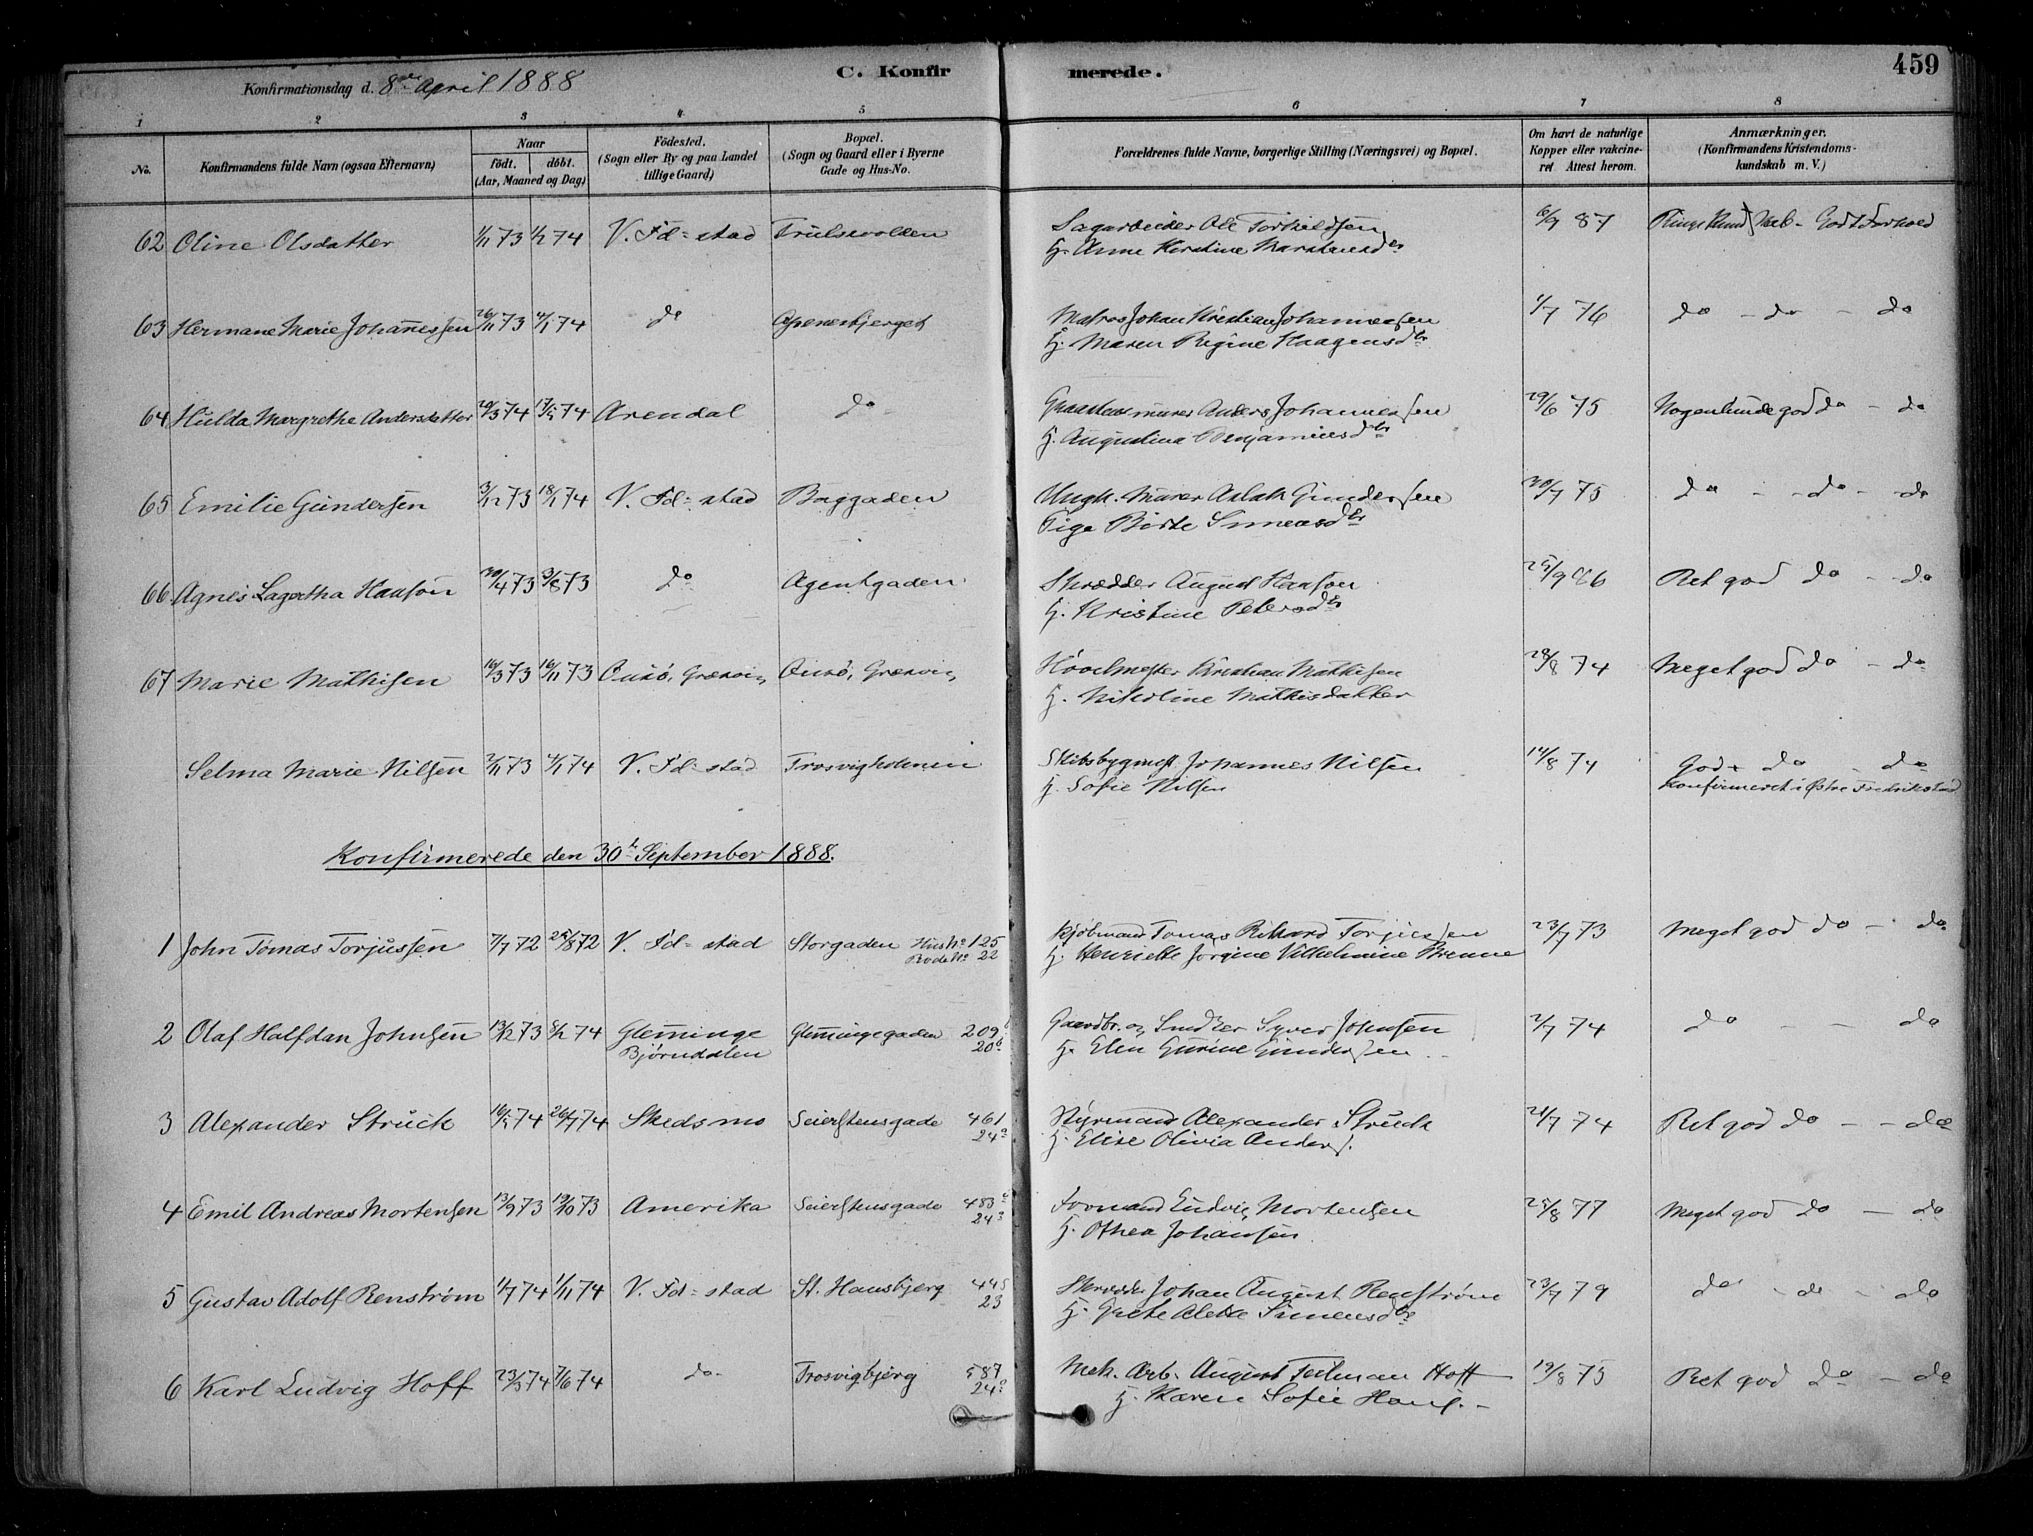 459
Konfirmationsdag d. 8de April 1888
C. Konfirmerede.
1 2 3 4 5 6 7 8
No.
Konfirmandens fulde Navn (ogsaa Efternavn)
Naar
födt. döbt.
(Aar, Maaned og Dag)
Födested.
(Sogn eller By og paa Landet
tillige Gaard)
Bopæl.
(Sogn og Gaard eller i Byerne
Gade og Hus-No.
Forældrenes fulde Navne, borgerlige Stilling (Næringsvei) og Bopæl.
Om havt de naturlige
Kopper eller vakcine-
ret Attest herom.
Anmærkninger.
(Konfirmandens Kristendoms-
kundskab m. V.)
62 Oline Olsdatter 1/11 73 1/2 74 V. Fd=stad Trulsevolden Sagarbeider Ole Torkildsen 6/9 87 Ringe Kundskab - Godt Forhold
H. Anne Kirstine Martensdtr
63 Hermane Marie Johannessen 26/11 73 4/1 74 do Apenesbjerget Matros Johan Kristian Johannessen 1/7 76 do - do - do
H. Maren Regine Haagensdtr
64 Hulda Margrethe Andersdatter 20/3 74 17/5 74 Arendal do Graastensmurer Anders Johannessen 29/6 75 Nogenlunde god do - do
H. Augustina Benjaminsdtr
65 Emilie Gundersen 3/12 73 18/1 74 V. Fd=stad Baggaden Ungk. Murer Aslak Gundersen 30/7 75 do - - do - do
Pige Birte Simensdtr
66 Agnes Lagertha Haason 30/4 73 3/8 73 do Agentgaden Skrædder August Haason 25/9 86 Ret god do - do
H. Kristine Petersdtr
67 Marie Mathisen 16/3 73 16/11 73 Onsö, Græsvig Onsö, Græsvig Høvelmester Kristian Mathisen 28/8 74 Meget god do - do
H. Nikoline Mathisdatter
Selma Marie Nilsen 2/11 73 4/1 74 V. Fd=stad Trosvigholmen Skibsbygmest. Johannes Nilsen 14/8 74 God do - do
H. Sofie Nilsen Konfirmeret i Østre Fredrikstad
Konfirmerede den 30te September 1888.
1 John Tomas Torjussen 7/7 72 25/8 72 V. Fd=stad Storgaden Hus No 125 Kjöbmand Tomas Rikard Torjussen 23/7 73 Meget god do - do
Rode No 22 H. Henriette Jörgine Vilhelmine Brenne
2 Olaf Halfdan Johnsen 13/12 73 8/2 74 Glemminge Glemmingegaden 209 Gaardbr. og Snedker Syver Johnsen 2/7 74 do - - do
Björndalen 20 H. Elen Gurine Gundersen
3 Alexander Struck 16/5 74 26/7 74 Skedsmo Seierstensgade 461 Styrmand Alexander Struck 21/7 74 Ret god do - - do
24 H. Elise Olivia Anders.
4 Emil Andreas Mortensen 13/9 73 19/10 73 Amerika Seierstensgade 483 Formand Ludvig Mortensen 25/8 77 Meget god do - do
24 H. Othea Johansen
5 Gustav Adolf Renström 1/7 74 1/11 74 V. Fd=stad St. Hansbjerg 445 Skrædder Johan August Renström 23/7 79 do - do - do
23 H. Grete Alette Simensdtr
6 Karl Ludvig Hoff 23/3 74 7/6 74 do Trosvigbjerg 587 Mek. Arb. August Teilman Hoff 19/8 75 Ret god do - do
24 H. Karen Sofie Hans. -